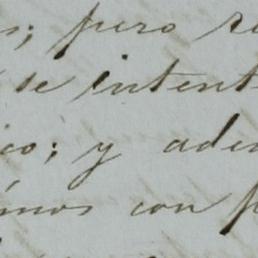 s; pero
se intent
ico; y ade
imos con